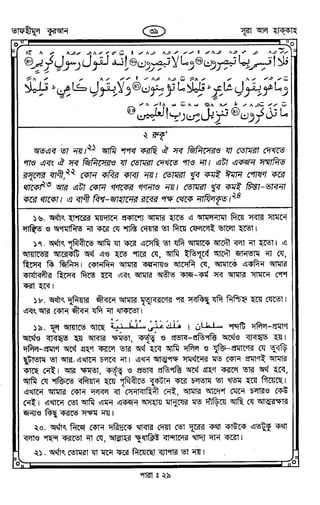 তাফহীমুল কুরআন
৩৯
সূরা আল হাক্কাহ
فَلَا أُقْسِمُ بِمَا تُبْصِرُونَ ۝ وَمَا لَا تُبْصِرُونَ ۝ إِنَّهُ لَقَوْلُ رَسُولٍ كَرِيمٍ ۝
وَمَا هُوَ بِقَوْلِ شَاعِرٍ قَلِيلًا مَا تُؤْمِنُونَ ۝ وَلَا بِقَوْلِ كَاهِنٍ قَلِيلًا
مَا تَذَكَّرُونَ ۝ تَنْزِيلٌ مِنْ رَبِّ الْعَالَمِينَ ۝
২ রুকূ'
অতএব তা নয়।২১ আমি শপথ করছি ঐ সব জিনিসেরও যা তোমরা দেখতে
পাও এবং ঐ সব জিনিসেরও যা তোমরা দেখতে পাও না। এটা একজন সম্মানিত
রসূলের বাণী,২২ কোন কবির কাব্য নয়। তোমরা খুব কমই ঈমান পোষণ করে
থাকো।২৩ আর এটা কোন গণকের গণনাও নয়। তোমরা খুব কমই চিন্তা-ভাবনা
করে থাকো। এ বাণী বিশ্ব-জাহানের রবের পক্ষ থেকে নাযিলকৃত।২৪
১৬. অর্থাৎ হাশরের ময়দানে প্রকাশ্যে আমার হাতে এ আমলনামা দিয়ে সবার সামনে
লাঞ্ছিত ও অপমানিত না করে যে শাস্তি দেয়ার তা দিয়ে ফেললেই ভালো হতো।
১৭. অর্থাৎ পৃথিবীতে আমি যা করে এসেছি তা যদি আমাকে আদৌ বলা না হতো। এ
আয়াতের আরেকটি অর্থ এও হতে পারে যে, আমি ইতিপূর্বে আদৌ জানতাম না যে,
হিসেব কি জিনিস। কোনদিন আমার কল্পনায়ও আসেনি যে, আমাকে একদিন আমার
কার্যাবলীর হিসেব দিতে হবে এবং আমার অতীত কাজ-কর্ম সব আমার সামনে পেশ
করা হবে।
১৮. অর্থাৎ দুনিয়ার জীবনে আমার মৃত্যুবরণের পর সবকিছু যদি নিশ্চিহ্ন হয়ে যেতো।
এবং আর কোন জীবন যদি না থাকতো।
১৯. মূল আয়াতে আছে هَلَكَ عَنِّي سُلْطَانِيَهْ। سلطان শব্দটি দলিল-প্রমাণ
অর্থেও ব্যবহৃত হয় আবার ক্ষমতা, কর্তৃত্ব ও প্রভাব-প্রতিপত্তি অর্থেও ব্যবহৃত হয়।
দলিল-প্রমাণ অর্থে গ্রহণ করলে তার অর্থ হবে আমি দলিল ও যুক্তি-প্রমাণের যে তুবড়ি
ছুটাতাম তা আর এখানে নেই। এখন আত্মপক্ষ সমর্থনের মত কোন প্রমাণই আমার
কাছে নেই। আর ক্ষমতা, কর্তৃত্ব ও প্রভাব-প্রতিপত্তি অর্থে গ্রহণ করলে তার অর্থ হবে,
আমি যে শক্তিতে বলিয়ান হয়ে পৃথিবীতে বুকটান করে চলতাম তা খতম হয়ে গিয়েছে।
এখানে আমার কোন দলবল বা সেনাবাহিনী নেই, আমার আদেশ মেনে চলারও কেউ
নেই। এখানে তো আমি এমন একজন অসহায় মানুষের মত দাঁড়িয়ে আছি যে আত্মরক্ষার
জন্যও কিছু করতে সক্ষম নয়।
২০. অর্থাৎ নিজে কোন দরিদ্রকে খাবার দেয়া তো দূরের কথা কাউকে এতটুকু কথা
বলাও পছন্দ করতো না যে, আল্লাহর ক্ষুধাক্লিষ্ট বান্দাদের খাদ্য দান করো।
২১. অর্থাৎ তোমরা যা মনে করে নিয়েছো ব্যাপার তা নয়।
পারা : ২৯